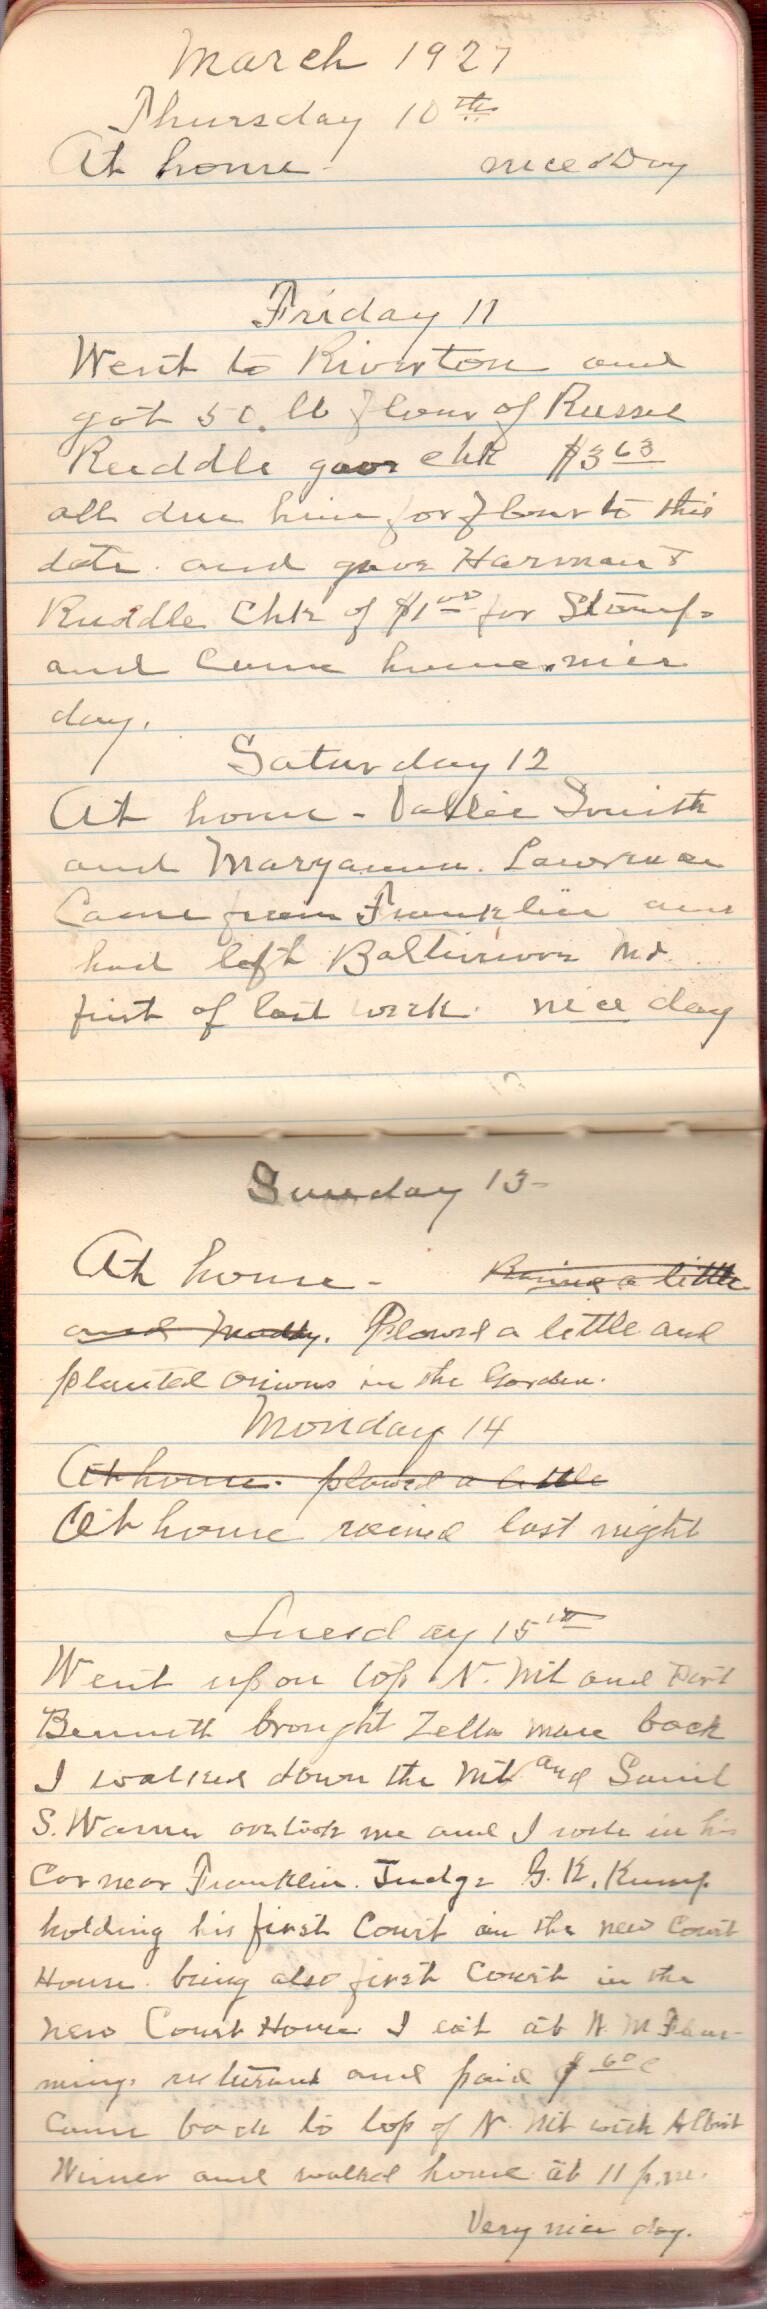 March 1927
Thursday 10th
At home - nice Day
Friday 11
Went to Riverton and
got 50. lb flour of Russel
Ruddle gave chk $3 63
all due him for flour to this
date. and gave Harman &
Ruddle Chk of $1 00 for
and came home. nice
day.
Saturday 12
At home - Vallie Smith
and Maryann. Lawrence
Came from Franklin and
had left Baltimore Md.
first of last week. nice day
Sunday 13-
At home - Rained a little
and Muddy. Plowed a little and
planted onions in the Garden.
Monday 14
At home. plowed a little
At home rained last night
Tuesday 15th
Went up on top N. Mt and
Bennett brought Zella mare back
I walked down the Mt and Saml
S. Warner overtook me and I rode in his
Car near Franklin. Judge Kump
holding his first Court in the new Court
House. being also first Court in the
new Court House. I eat at
returant and paid 60 c
Came back to top of N. Mt with Albert
and walked home at 11 p.m.
Very nice day.